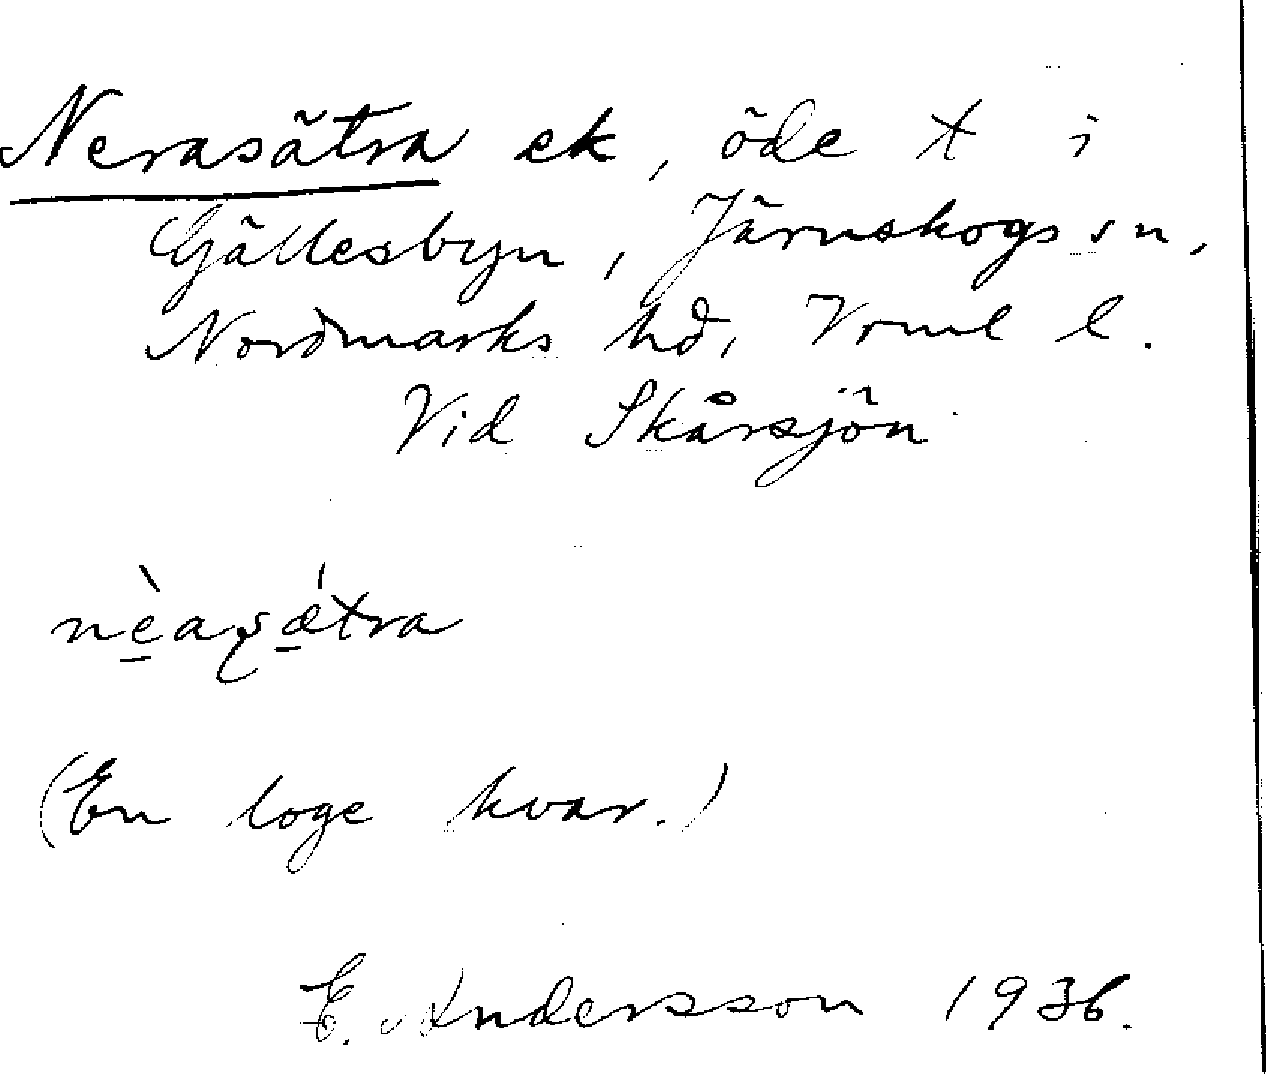 Nerasätra ek, öde t i
Gällesbyn, Järnskogs sn,
Nordmarks hd, Vrml l.
Vid Skårsjön
nèaʂǽtra
(En loge kvar.)
E. Andersson 1936.